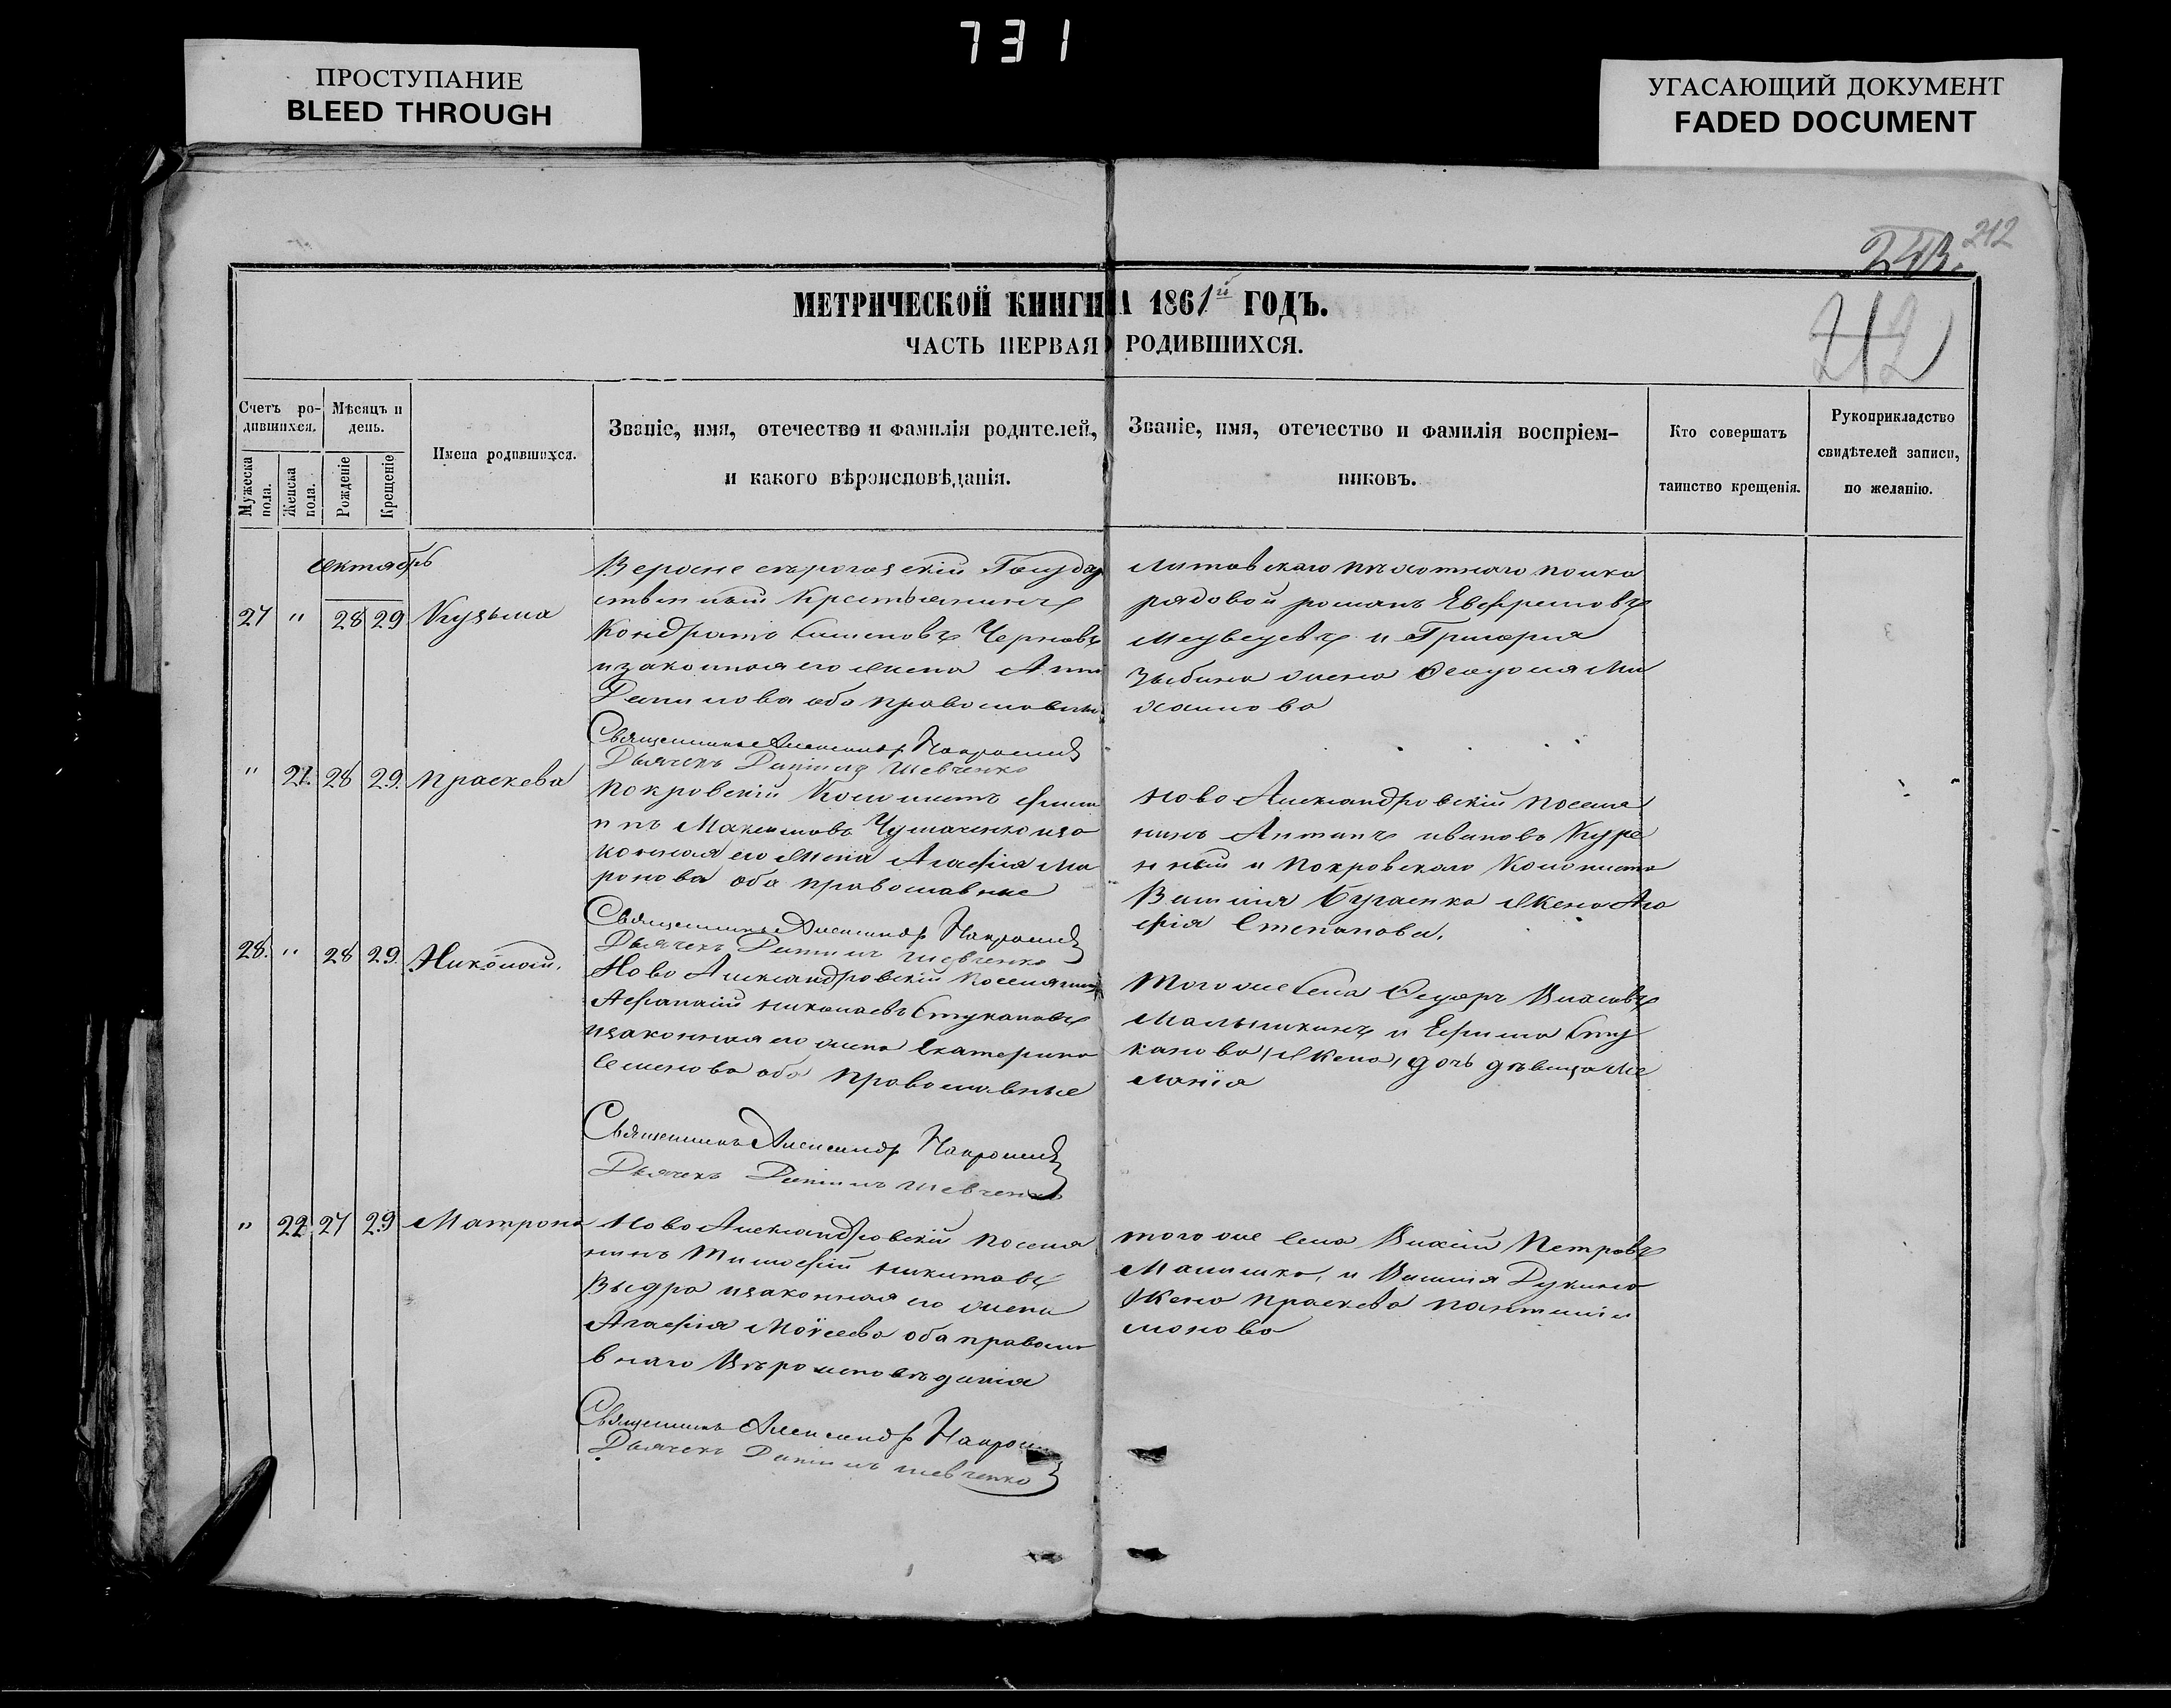 731
ПРОСТУПАНИЕ
BLEED THROUGH
УГАСАЮЩИЙ ДОКУМЕНТ
FADED DOCUMENT
212
243.
212
МЕТРИЧЕСКОЙ КНИГИ НА 1861й ГОДЪ.
ЧАСТЬ ПЕРВАЯ О РОДИВШИХСЯ.
Счетъ ро-
дившихся.
Мужеска
пола.
Женска
пола.
Мѣсяцъ и
день.
Рожденіе
Крещеніе
Имена родившихся.
Званіе, имя, отечество и фамилія родителей,
и какого вѣроисповѣданія.
Званіе, имя, отечество и фамилія воспріем-
никовъ.
Кто совершатъ
таинство крещенія.
Рукоприкладство
свидѣтелей записи,
по желанію.
октябрь
27 " 28 29 Кузьма
Государ
ственный Крестьянинъ
Кондратъ Чернавъ
и законная его жена Анна
Данилова оба православны
Священникъ Александръ
Дьячекъ Даніилъ Шевченко
Литовскаго пѣхотнаго полка
рядовой романъ
Медведевъ и Григорія
жена Ѳеодосія Ми
хаилова
" 21. 28 29. Праскева
Покровскій Колонистъ Фили
ппъ Максимовъ Чумаченко иза
конная его жена Агафія Ма
ронова оба православные
Священникъ Александръ
Дьячекъ Даніилъ Шевченко
Ново Александровскій поселя
нинъ Антанъ ивановъ Куре
нный и Покровскаго Колониста
Василія жена Ага
фія Степанова.
28. " 28 29. Николай.
Ново Александровскій поселянинъ
Афанасій николаевъ Стукановъ
изаконная его жена Екатерина
Семенова оба православные
Священникъ Александръ
Дьячекъ Даніилъ Шевченко
Того же Села Ѳедоръ Власовъ
Малышкинъ и Ефима Сту
канова дочь дѣвица Ме
ланія
" 22 27 29 Матрона
Ново Александровскій поселя
нинъ Тимофій никитовъ
Выдра изаконная его жена
Агафія Моѵсеева оба правосла
внаго Вѣроисповѣданія
Священникъ Александръ
Дьячекъ Даніилъ Шевченко
того же села Петровъ
и Василія
Жена праскева пантелий
монова